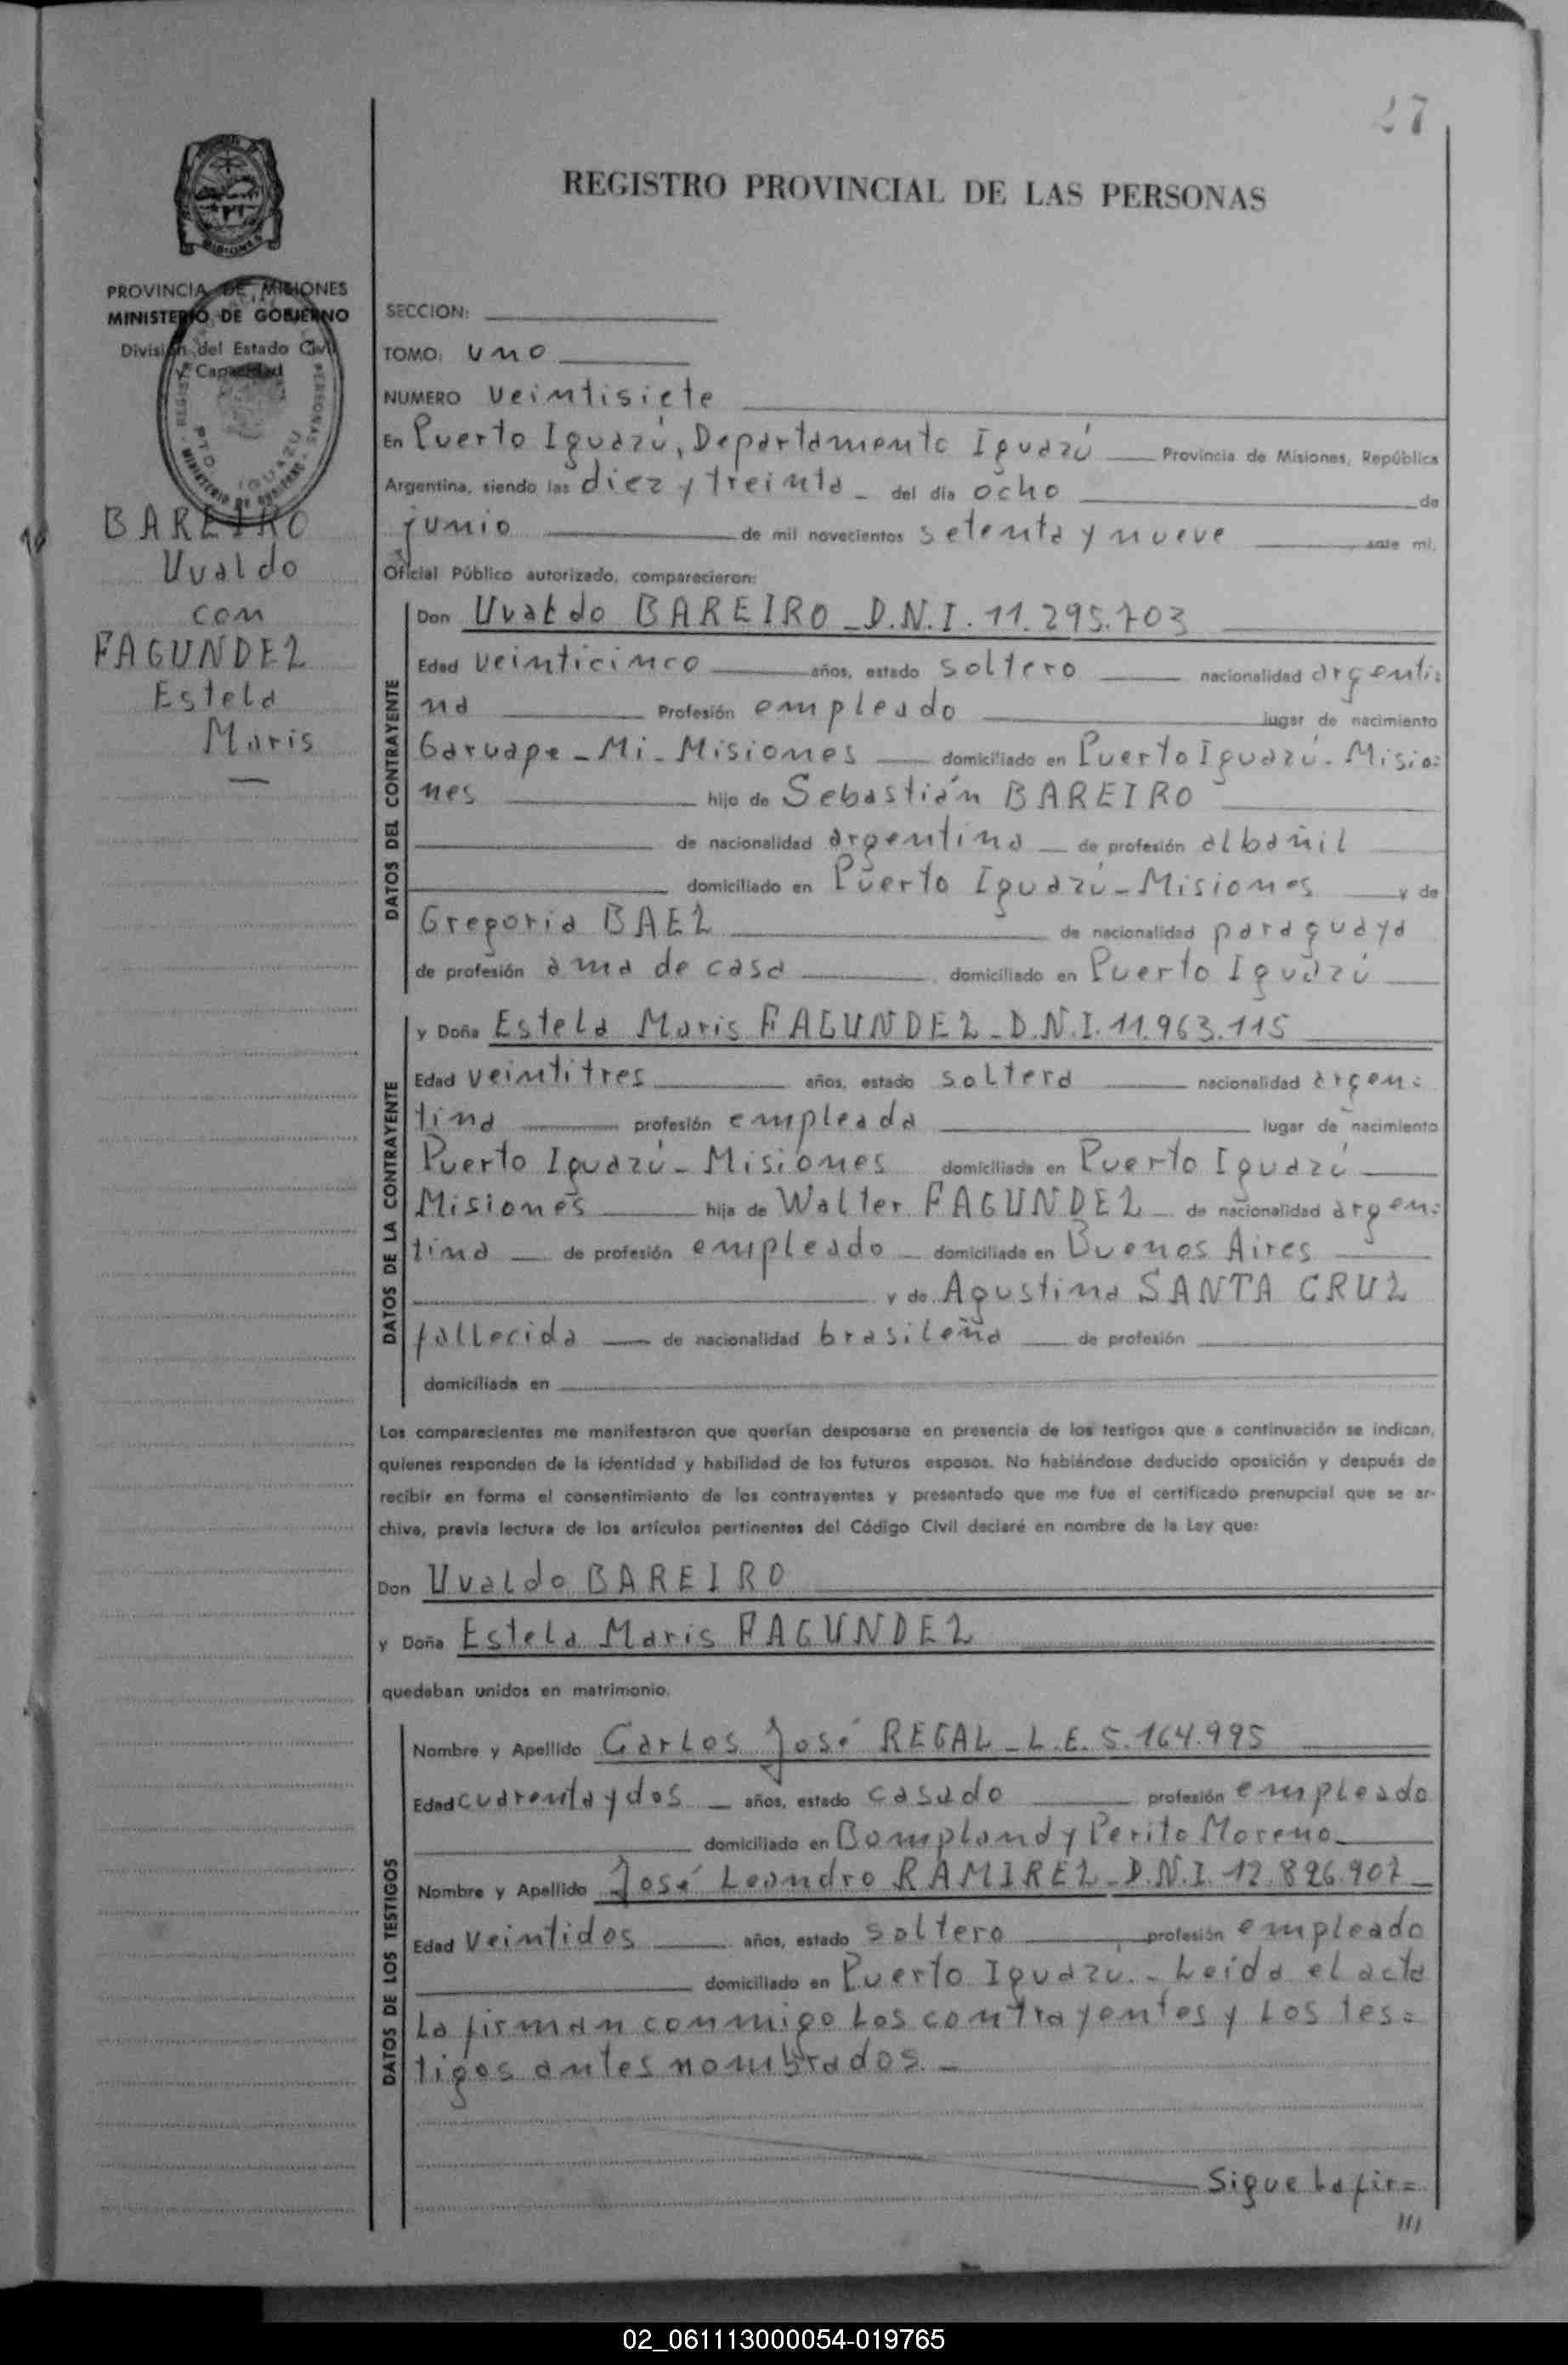 27
REGISTRO PROVINCIAL DE LAS PERSONAS
MISIONES
PROVINCIA DE MISIONES
MINISTERIO DE GOBIERNO
División del Estado Civil
y Capacidad
PTO. IGUAZU
MINISTERIO DE GOBIERNO
BAREIRO
Uvaldo
con
FAGUNDEZ
Estela
Maris
SECCION:
TOMO: uno
NUMERO veintisiete
En Puerto Iguazú, Departamento Iguazú Provincia de Misiones, República
Argentina, siendo las diez y treinta del día ocho de
junio de mil novecientos setenta y nueve ante mí,
Oficial Público autorizado, comparecieron:
DATOS DEL CONTRAYENTE
Don Uvaldo BAREIRO - D.N.I. 11.295.703
Edad veinticinco años, estado soltero nacionalidad argenti=
na Profesión empleado lugar de nacimiento
Garuape-Mi-Misiones domiciliado en Puerto Iguazú-Misio=
nes hijo de Sebastián BAREIRO
de nacionalidad argentina de profesión albañil
domiciliado en Puerto Iguazú-Misiones y de
Gregoria BAEZ de nacionalidad paraguaya
de profesión ama de casa domiciliado en Puerto Iguazú
DATOS DE LA CONTRAYENTE
y Doña Estela Maris FAGUNDEZ - D.N.I. 11.963.115
Edad veintitres años, estado soltera nacionalidad argen=
tina profesión empleada lugar de nacimiento
Puerto Iguazú-Misiones domiciliada en Puerto Iguazú
Misiones hija de Walter FAGUNDEZ de nacionalidad argen=
tina de profesión empleado domiciliado en Buenos Aires
y de Agustina SANTA CRUZ
fallecida de nacionalidad brasileña de profesión
domiciliada en
Los comparecientes me manifestaron que querían desposarse en presencia de los testigos que a continuación se indican,
quienes responden de la identidad y habilidad de los futuros esposos. No habiéndose deducido oposición y después de
recibir en forma el consentimiento de los contrayentes y presentado que me fue el certificado prenupcial que se ar-
chiva, previa lectura de los artículos pertinentes del Código Civil declaré en nombre de la Ley que:
Don Uvaldo BAREIRO
y Doña Estela Maris FAGUNDEZ
quedaban unidos en matrimonio.
DATOS DE LOS TESTIGOS
Nombre y Apellido Carlos José REGAL - L.E. 5.164.995
Edad cuarenta y dos años, estado casado profesión empleado
domiciliado en Bompland y Perito Moreno
Nombre y Apellido José Leandro RAMIREZ - D.N.I. 12.826.902
Edad veintidos años, estado soltero profesión empleado
domiciliado en Puerto Iguazú.- Leida el acta
la firman conmigo los contrayentes y los tes=
tigos antes nombrados.-
Sigue la fir=
///
02_061113000054-019765